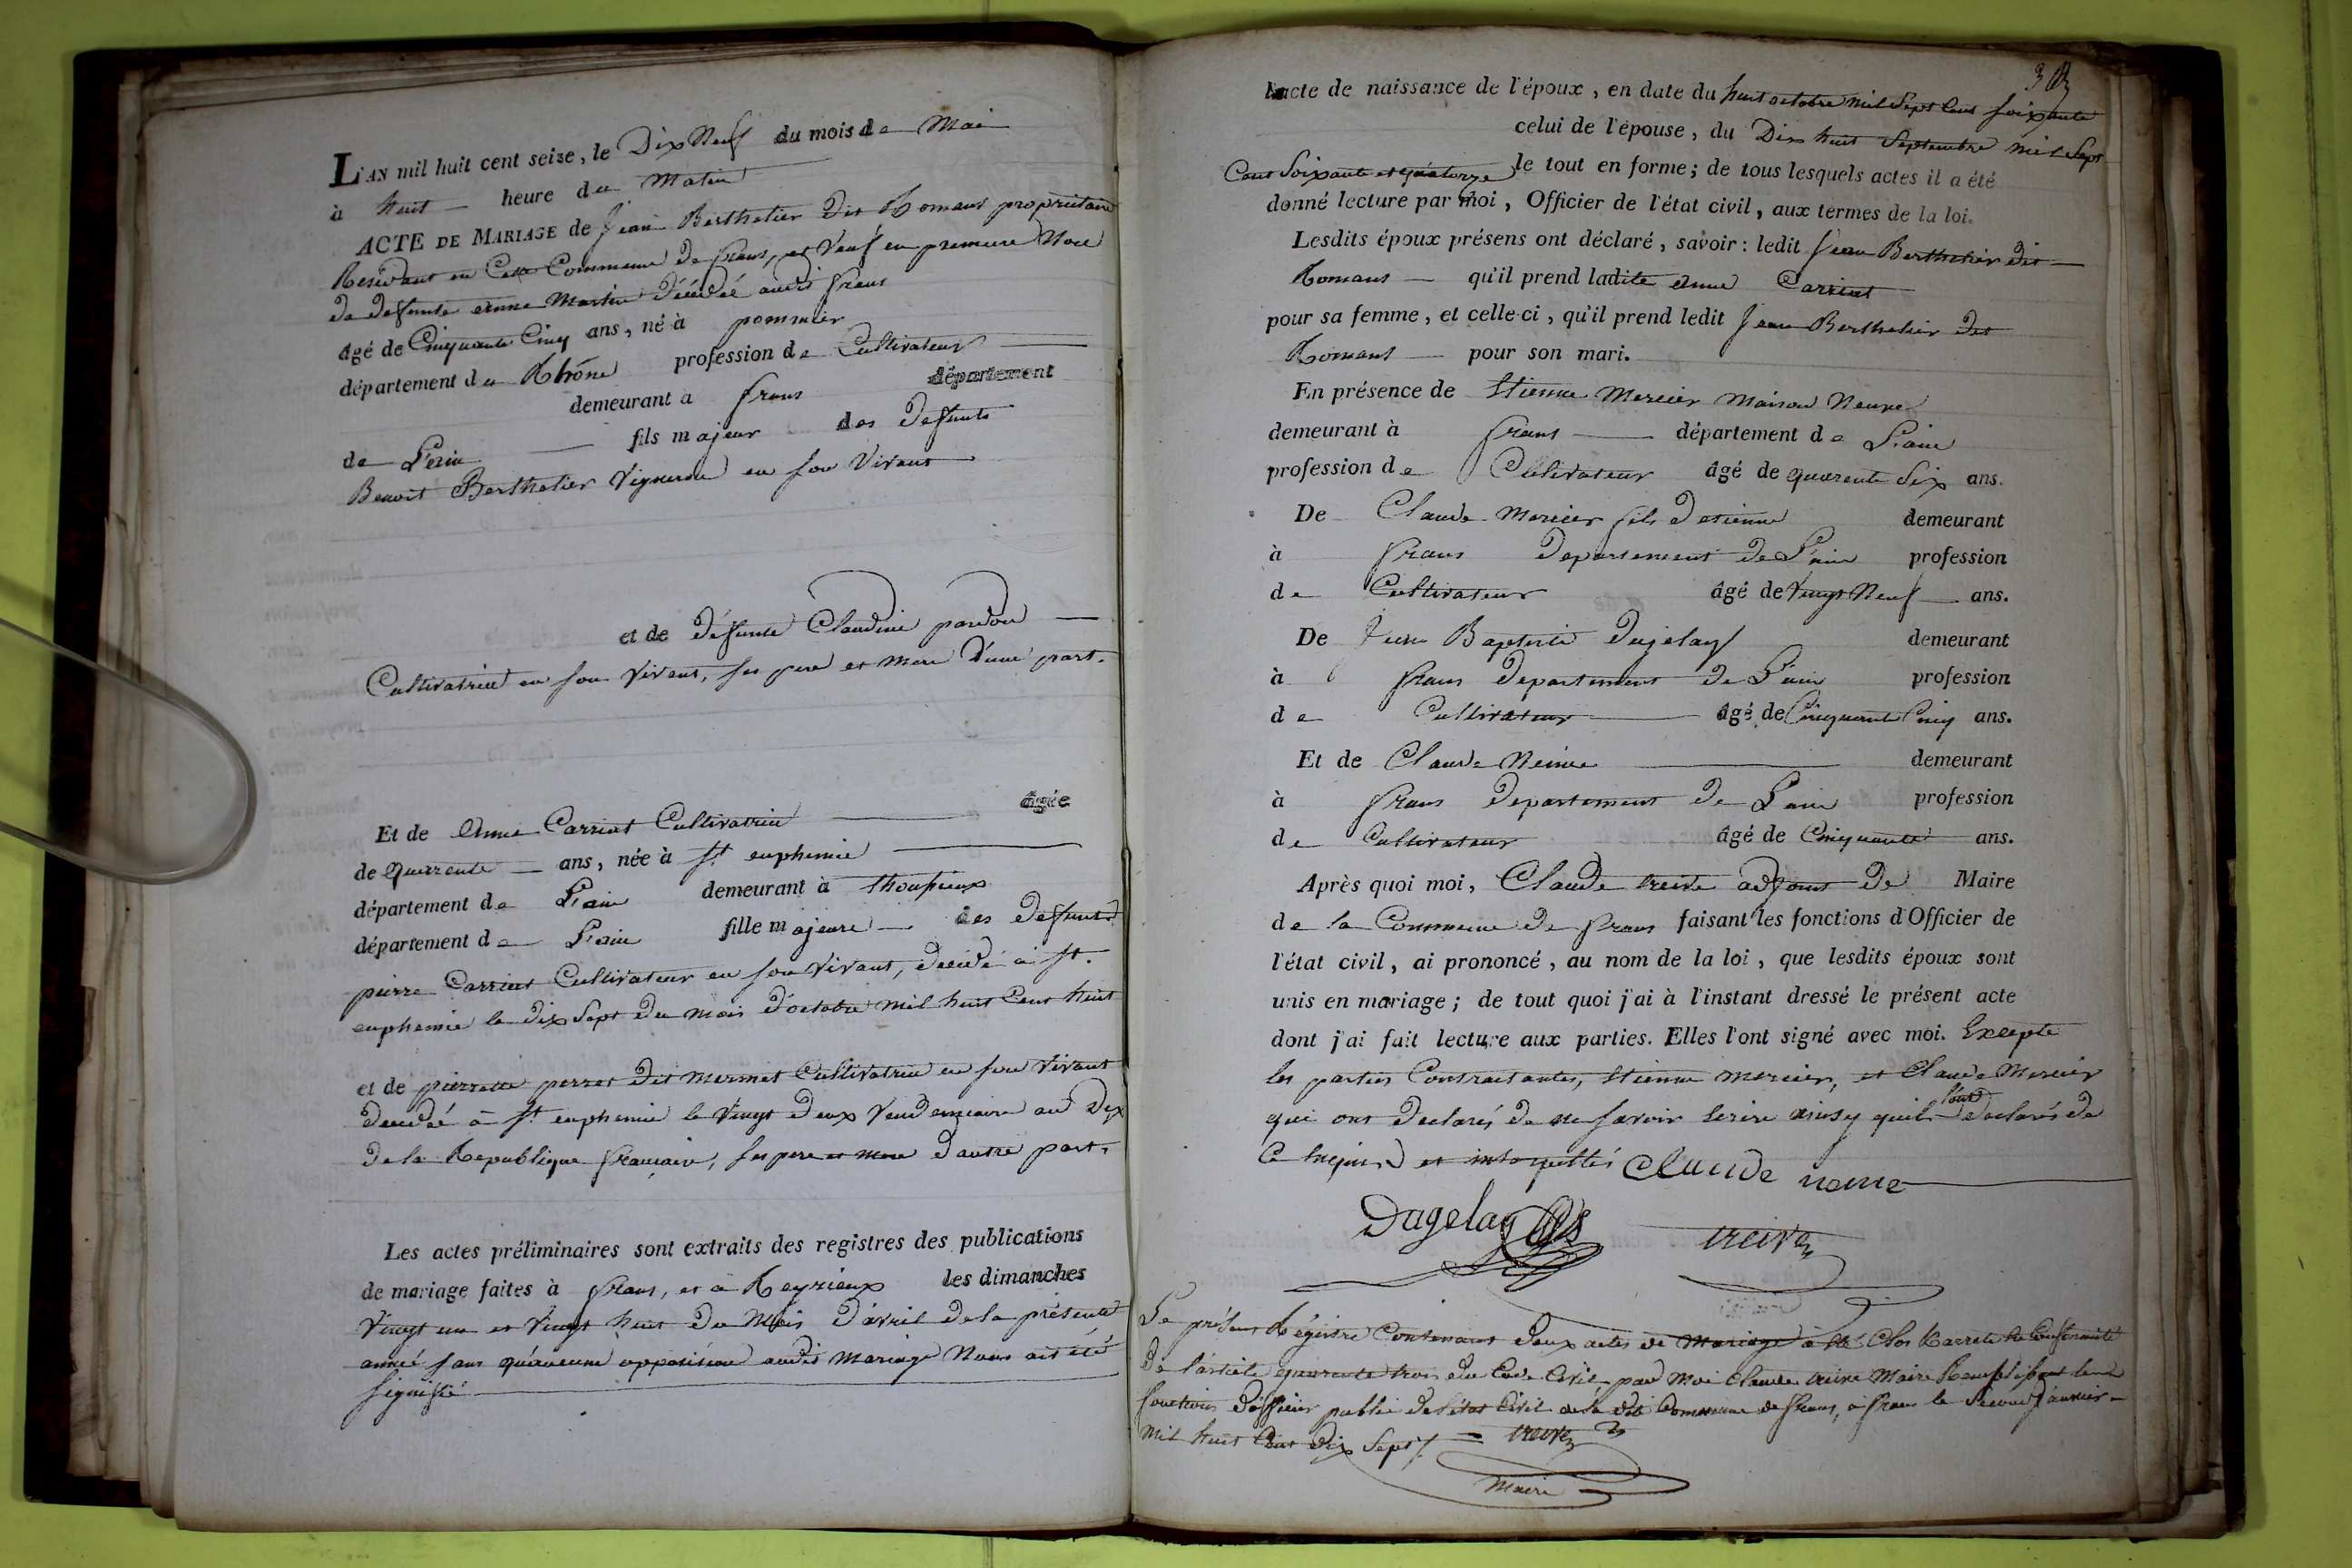 L'AN mil huit cent seize, le Dix Neuf du mois de Mai
à huit heure du Matin
ACTE DE MARIAGE de Jean Berthelier dit Romans propriétaire
Residant en Cette Commune de frans, et Veuf en premiere Noce
de defunte anne Martin décédée audit frans
âgé de Cinquante Cinq ans, né à pommier
département du Rhône profession de Cultivateur
demeurant a frans département
de L'ain fils majeur des defunts
Benoit Berthelier Vigneron en son Vivant
et de défunte Claudine pardon
Cultivatrice en son Vivant, ses pere et mere d'une part.
Et de Anne Carriat Cultivatrice âgée
de quarente ans, née à St. euphemie
département de L'ain demeurant à thousieux
département de L'ain fille majeure des defunts
pierre Carriat Cultivateur en son Vivant, décédé à St.
euphemie le dix Sept du mois d'octobre mil huit Cent huit
et de pierrette perret dit mermet Cultivatrice en son Vivant
decedée à St. euphemie le Vingt deux Vendemiaire an Dix
de la Republique française, ses pere et mere d'autre part.
Les actes préliminaires sont extraits des registres des publications
de mariage faites à frans, et à Reyrieux les dimanches
Vingt un et Vingt huit du Mois d'avril de la présente
année sans qu'aucune opposition audit mariage Nous ait été
signifié
l'acte de naissance de l'époux, en date du huit octobre mil Sept Cent soixante
celui de l'épouse, du Dix huit Septembre mil Sept
Cent Soixante et quatorze le tout en forme; de tous lesquels actes il a été
donné lecture par moi, Officier de l'état civil, aux termes de la loi.
Lesdits époux présens ont déclaré, savoir: ledit Jean Berthelier dit
Romans qu'il prend ladite anne Carriat
pour sa femme, et celle-ci, qu'il prend ledit Jean Berthelier dit
Romans pour son mari.
En présence de Etienne Mercier Maison Neuve
demeurant à frans département de L'ain
profession de Cultivateur âgé de quarente Six ans.
De Claude Mercier fils d'etienne demeurant
à frans Departement de L'ain profession
de Cultivateur âgé de Vingt Neuf ans.
De Jean Baptiste Dugelay demeurant
à frans Departement de L'ain profession
de Cultivateur âgé de Cinquante Cinq ans.
Et de Claude Neme demeurant
à frans Departement de L'ain profession
de Cultivateur âgé de Cinquante ans.
Après quoi moi, Claude treive adjoint de Maire
de la Commune de frans faisant les fonctions d'Officier de
l'état civil, ai prononcé, au nom de la loi, que lesdits époux sont
unis en mariage; de tout quoi j'ai à l'instant dressé le présent acte
dont j'ai fait lecture aux parties. Elles l'ont signé avec moi. Excepté
les parties Contractantes, Etienne mercier, et Claude Mercier
qui ont declarés de ne savoir Ecrire ainsy quils l'ont declarés de
Ce Enquis et interpellés Claude neme
Dugelay treive
Le présent Régistre Contenant deux actes de Mariage a été Clos Karreté En Conformité
de l'article quarente trois du Code Civil par moi Claude treive Maire Remplissant les
fonctions d'officier public de l'état Civil de la dite Commune de frans, à frans le Second Janvier
Mil huit Cent dix Sept. treive
Maire